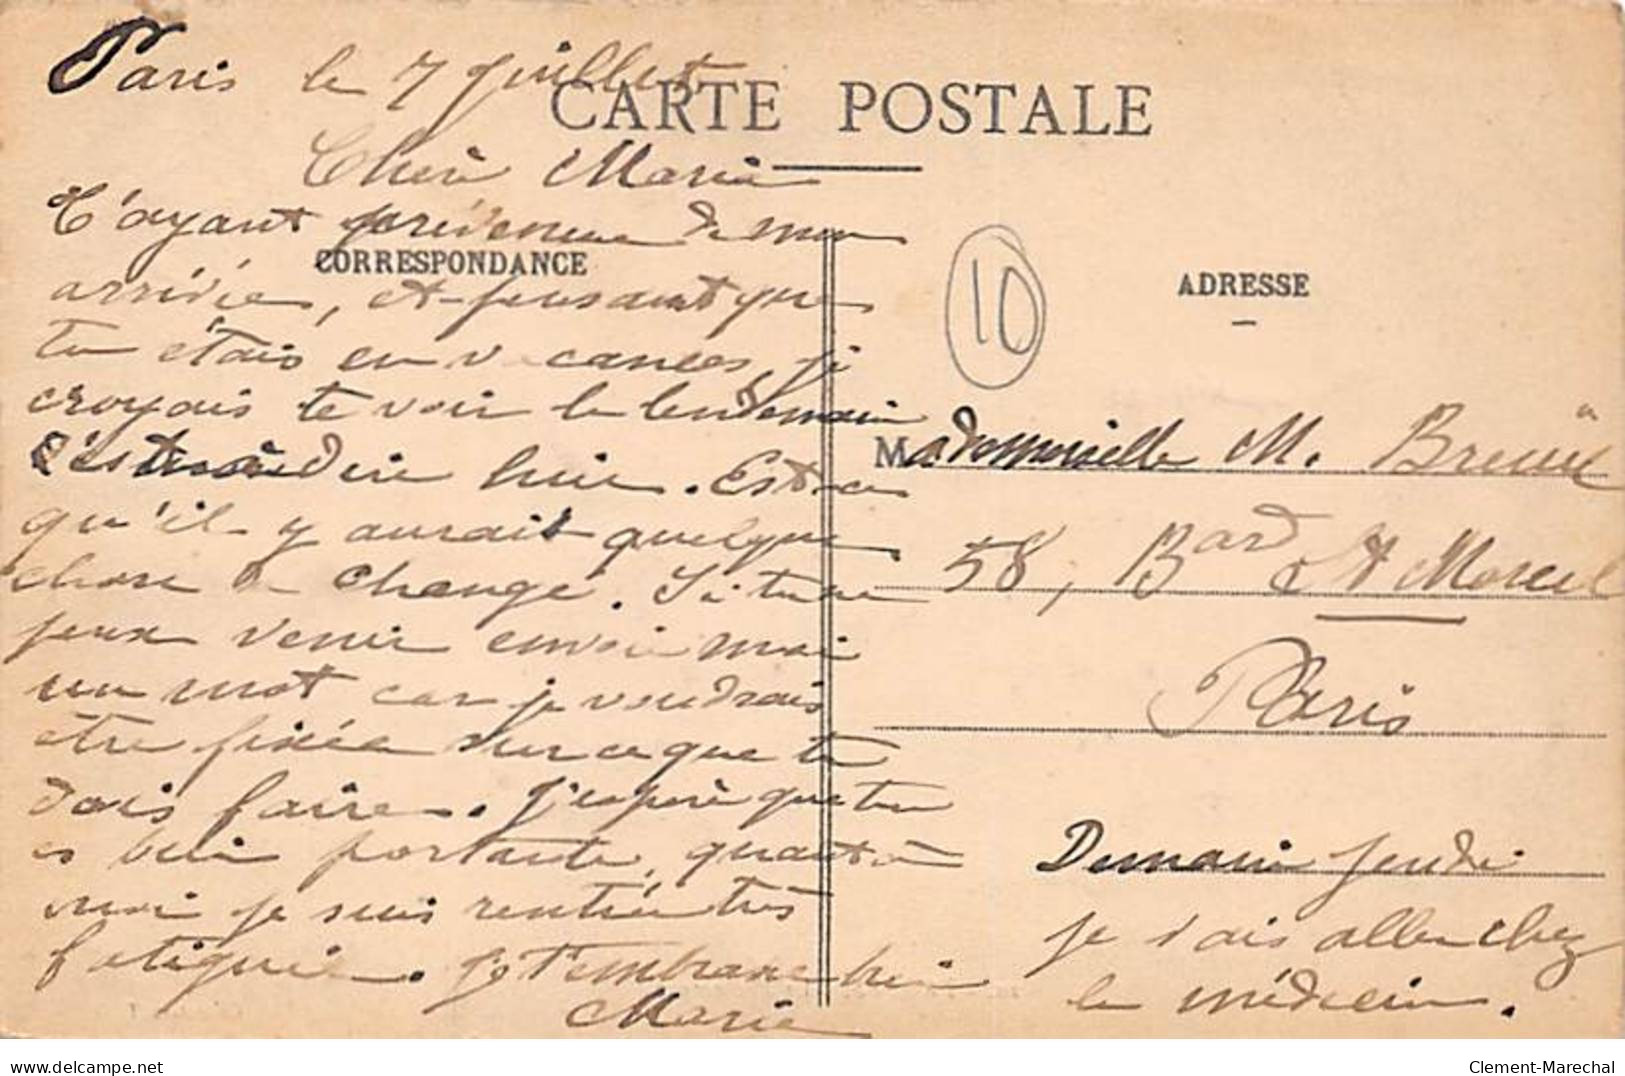 Paris le 7 Juillet
CARTE POSTALE
Chère Marie
T'ayant prévenue de mon
CORRESPONDANCE
arrivée, et pensant que
tu étais en vacances, je
croyais te voir le lendemain
c'est à dire hier. Est-ce
qu'il y aurait quelque
chose de changé. Si tu ne
peux venir envoie moi
un mot car je voudrais
être fixée sur ce que tu
dois faire. J'espère que tu
es bien portante, quant à
moi je suis rentrée très
fatiguée. Je t'embrasse bien
Marie
10
ADRESSE
Mademoiselle M. Breuil
58, Bard St Marcel
Paris
Demain jeudi
je vais aller chez
le médecin.
Clement-Marechal